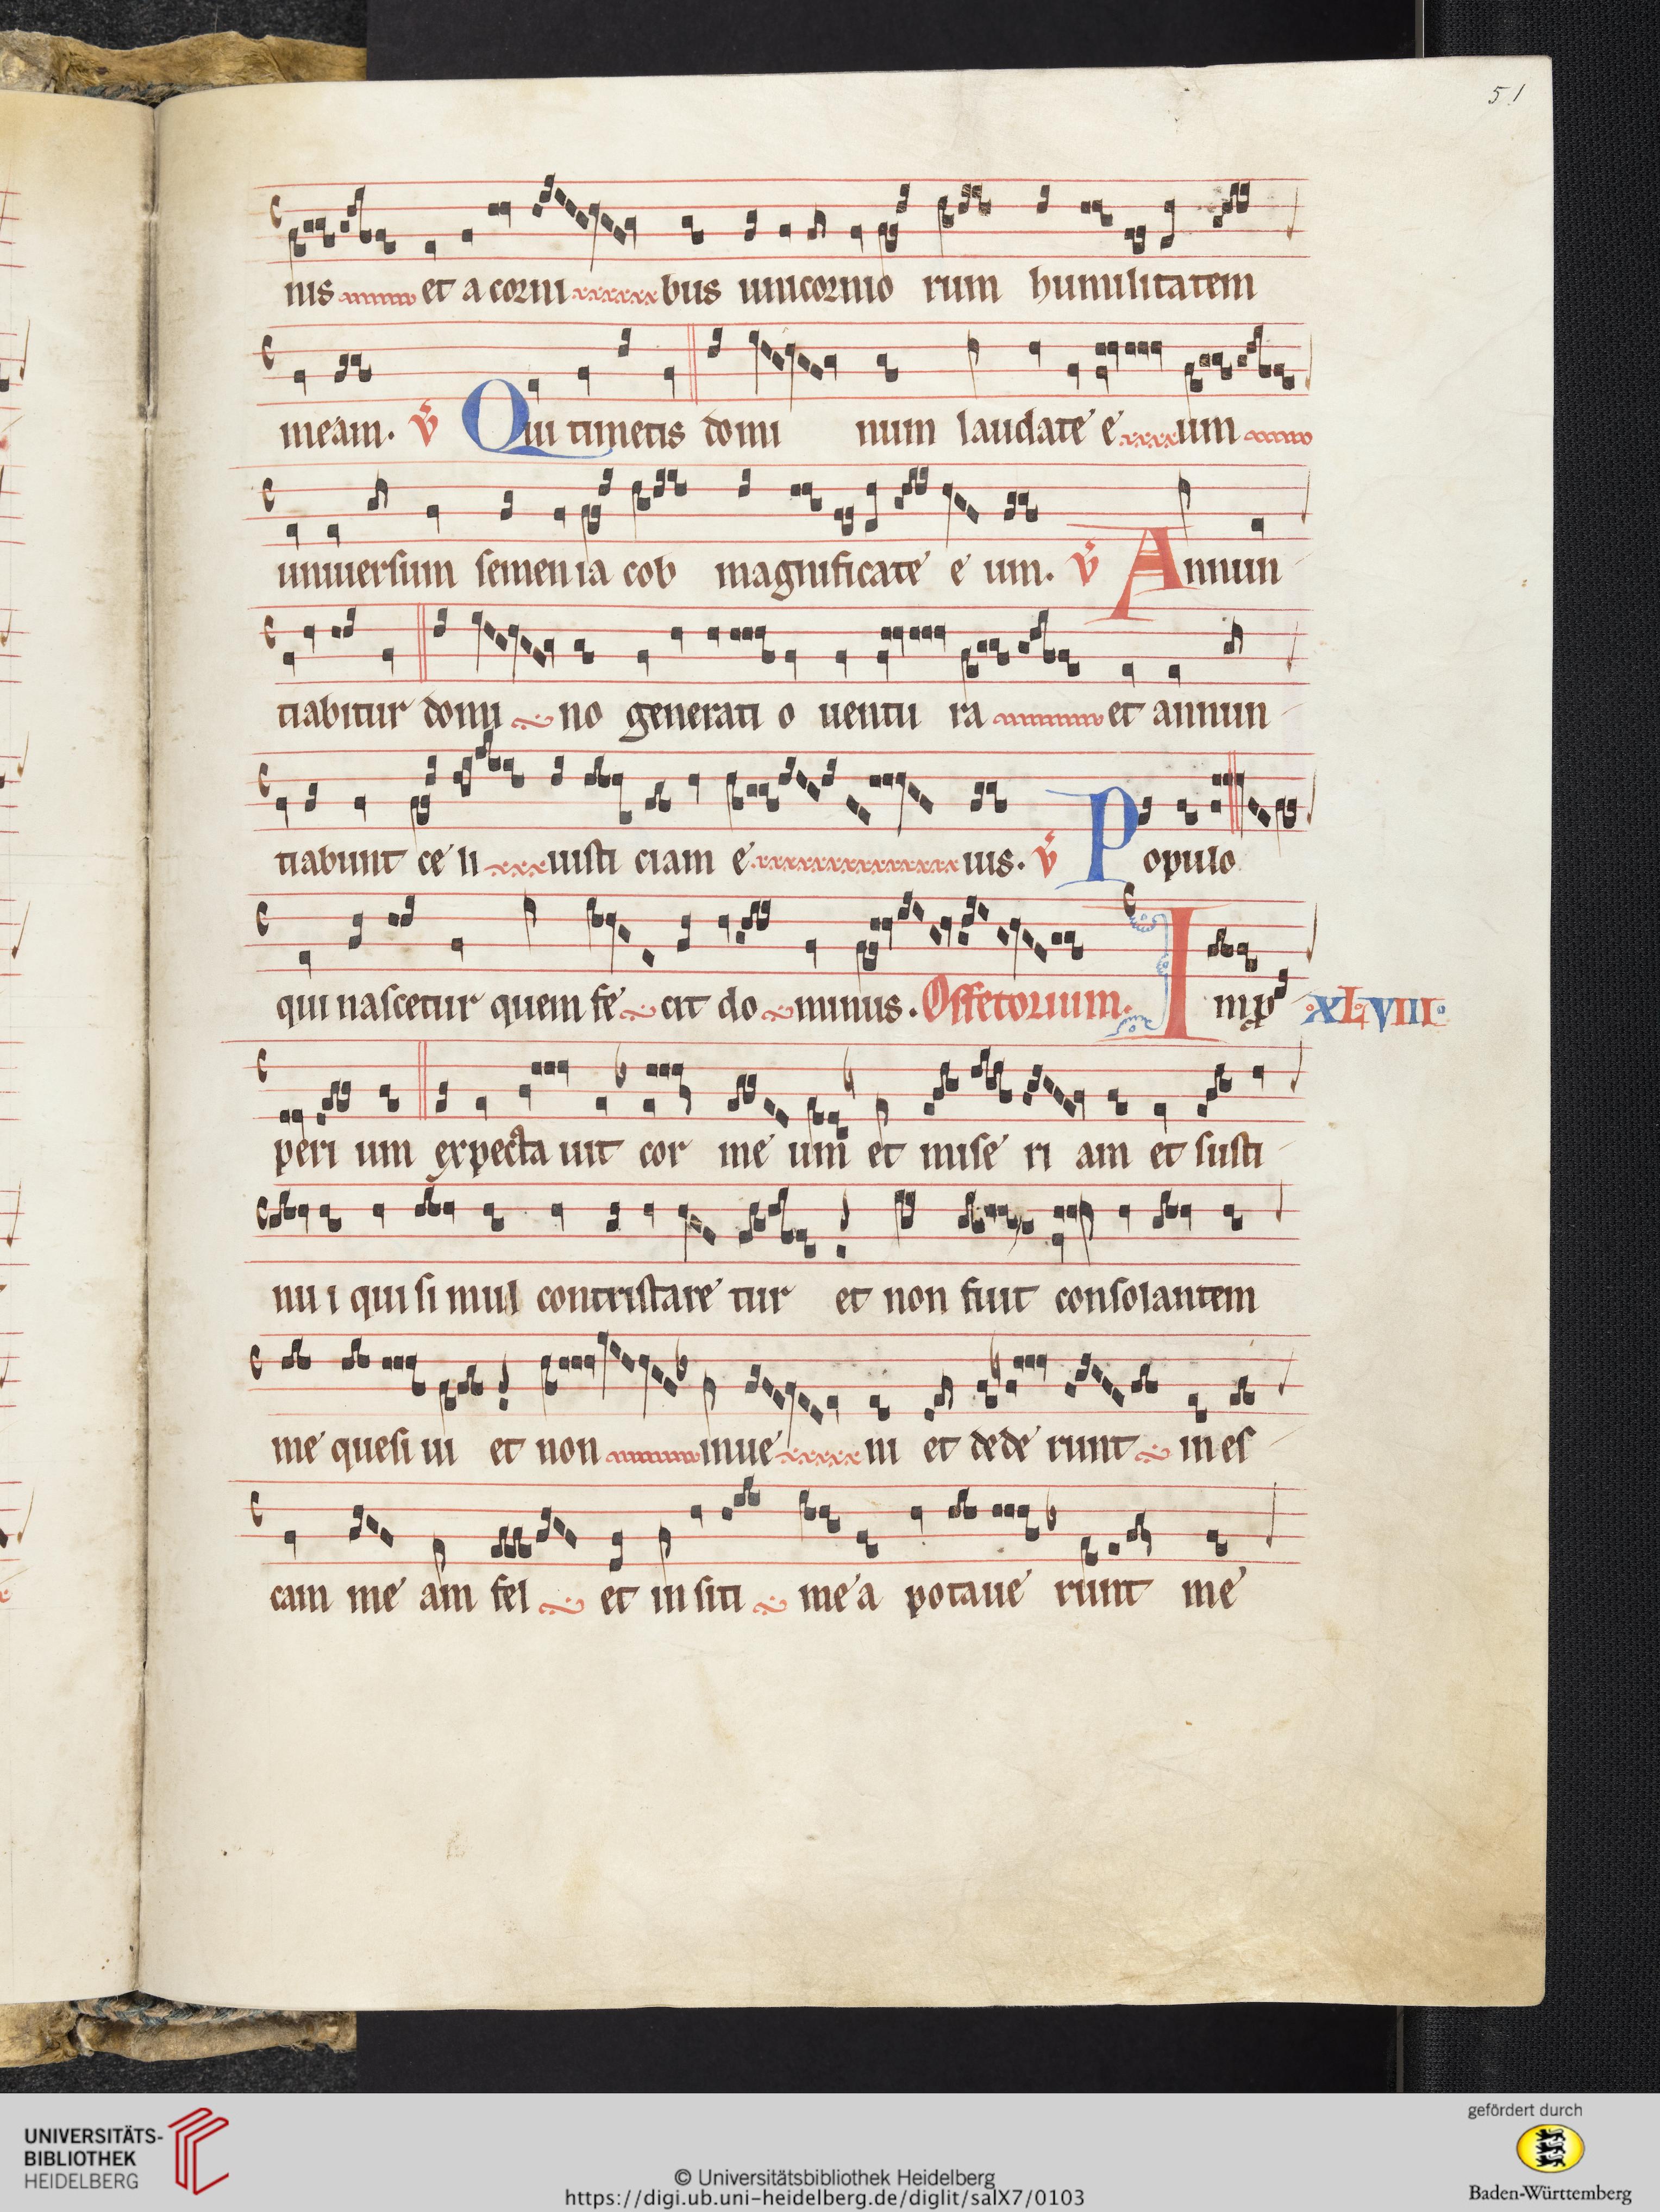 51
nis et a cornibus unicornio rum humilitatem
meam. v̄ Qui timetis domi num laudate e um
uniuersum semen ia cob magnificate e um. v̄ Annun
tiabitur domi no generati o uentu ra et annun
tiabunt ce li iusti ciam e ius. v̄ Populo
qui nascetur quem fe cit do minus. Offetorium. Inp̱ ·XLVIII·
peri um expecta uit cor me um et mise ri am et susti
nu i qui si mul contristare tur et non fuit consolantem
me quesi ui et non inue ni et dede runt in es
cam me am fel et in siti me a potaue runt me
UNIVERSITÄTS-
BIBLIOTHEK
HEIDELBERG
© Universitätsbibliothek Heidelberg
https://digi.ub.uni-heidelberg.de/diglit/salX7/0103
gefördert durch
Baden-Württemberg